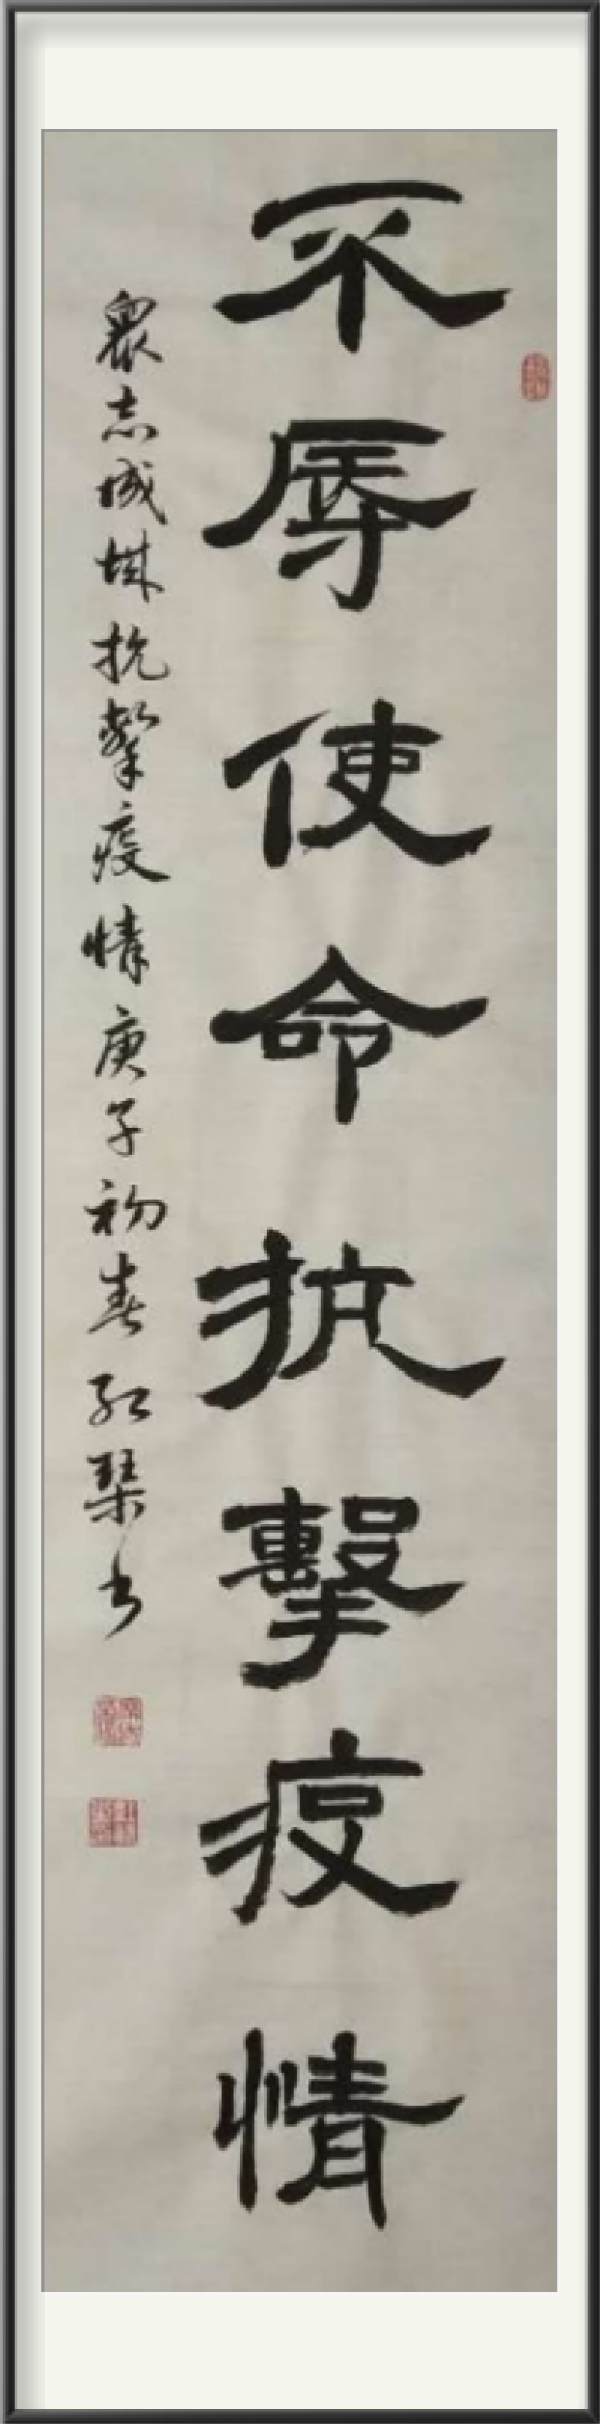 不辱使命抗擊疫情
衆志成城抗擊疫情庚子初春红琴书